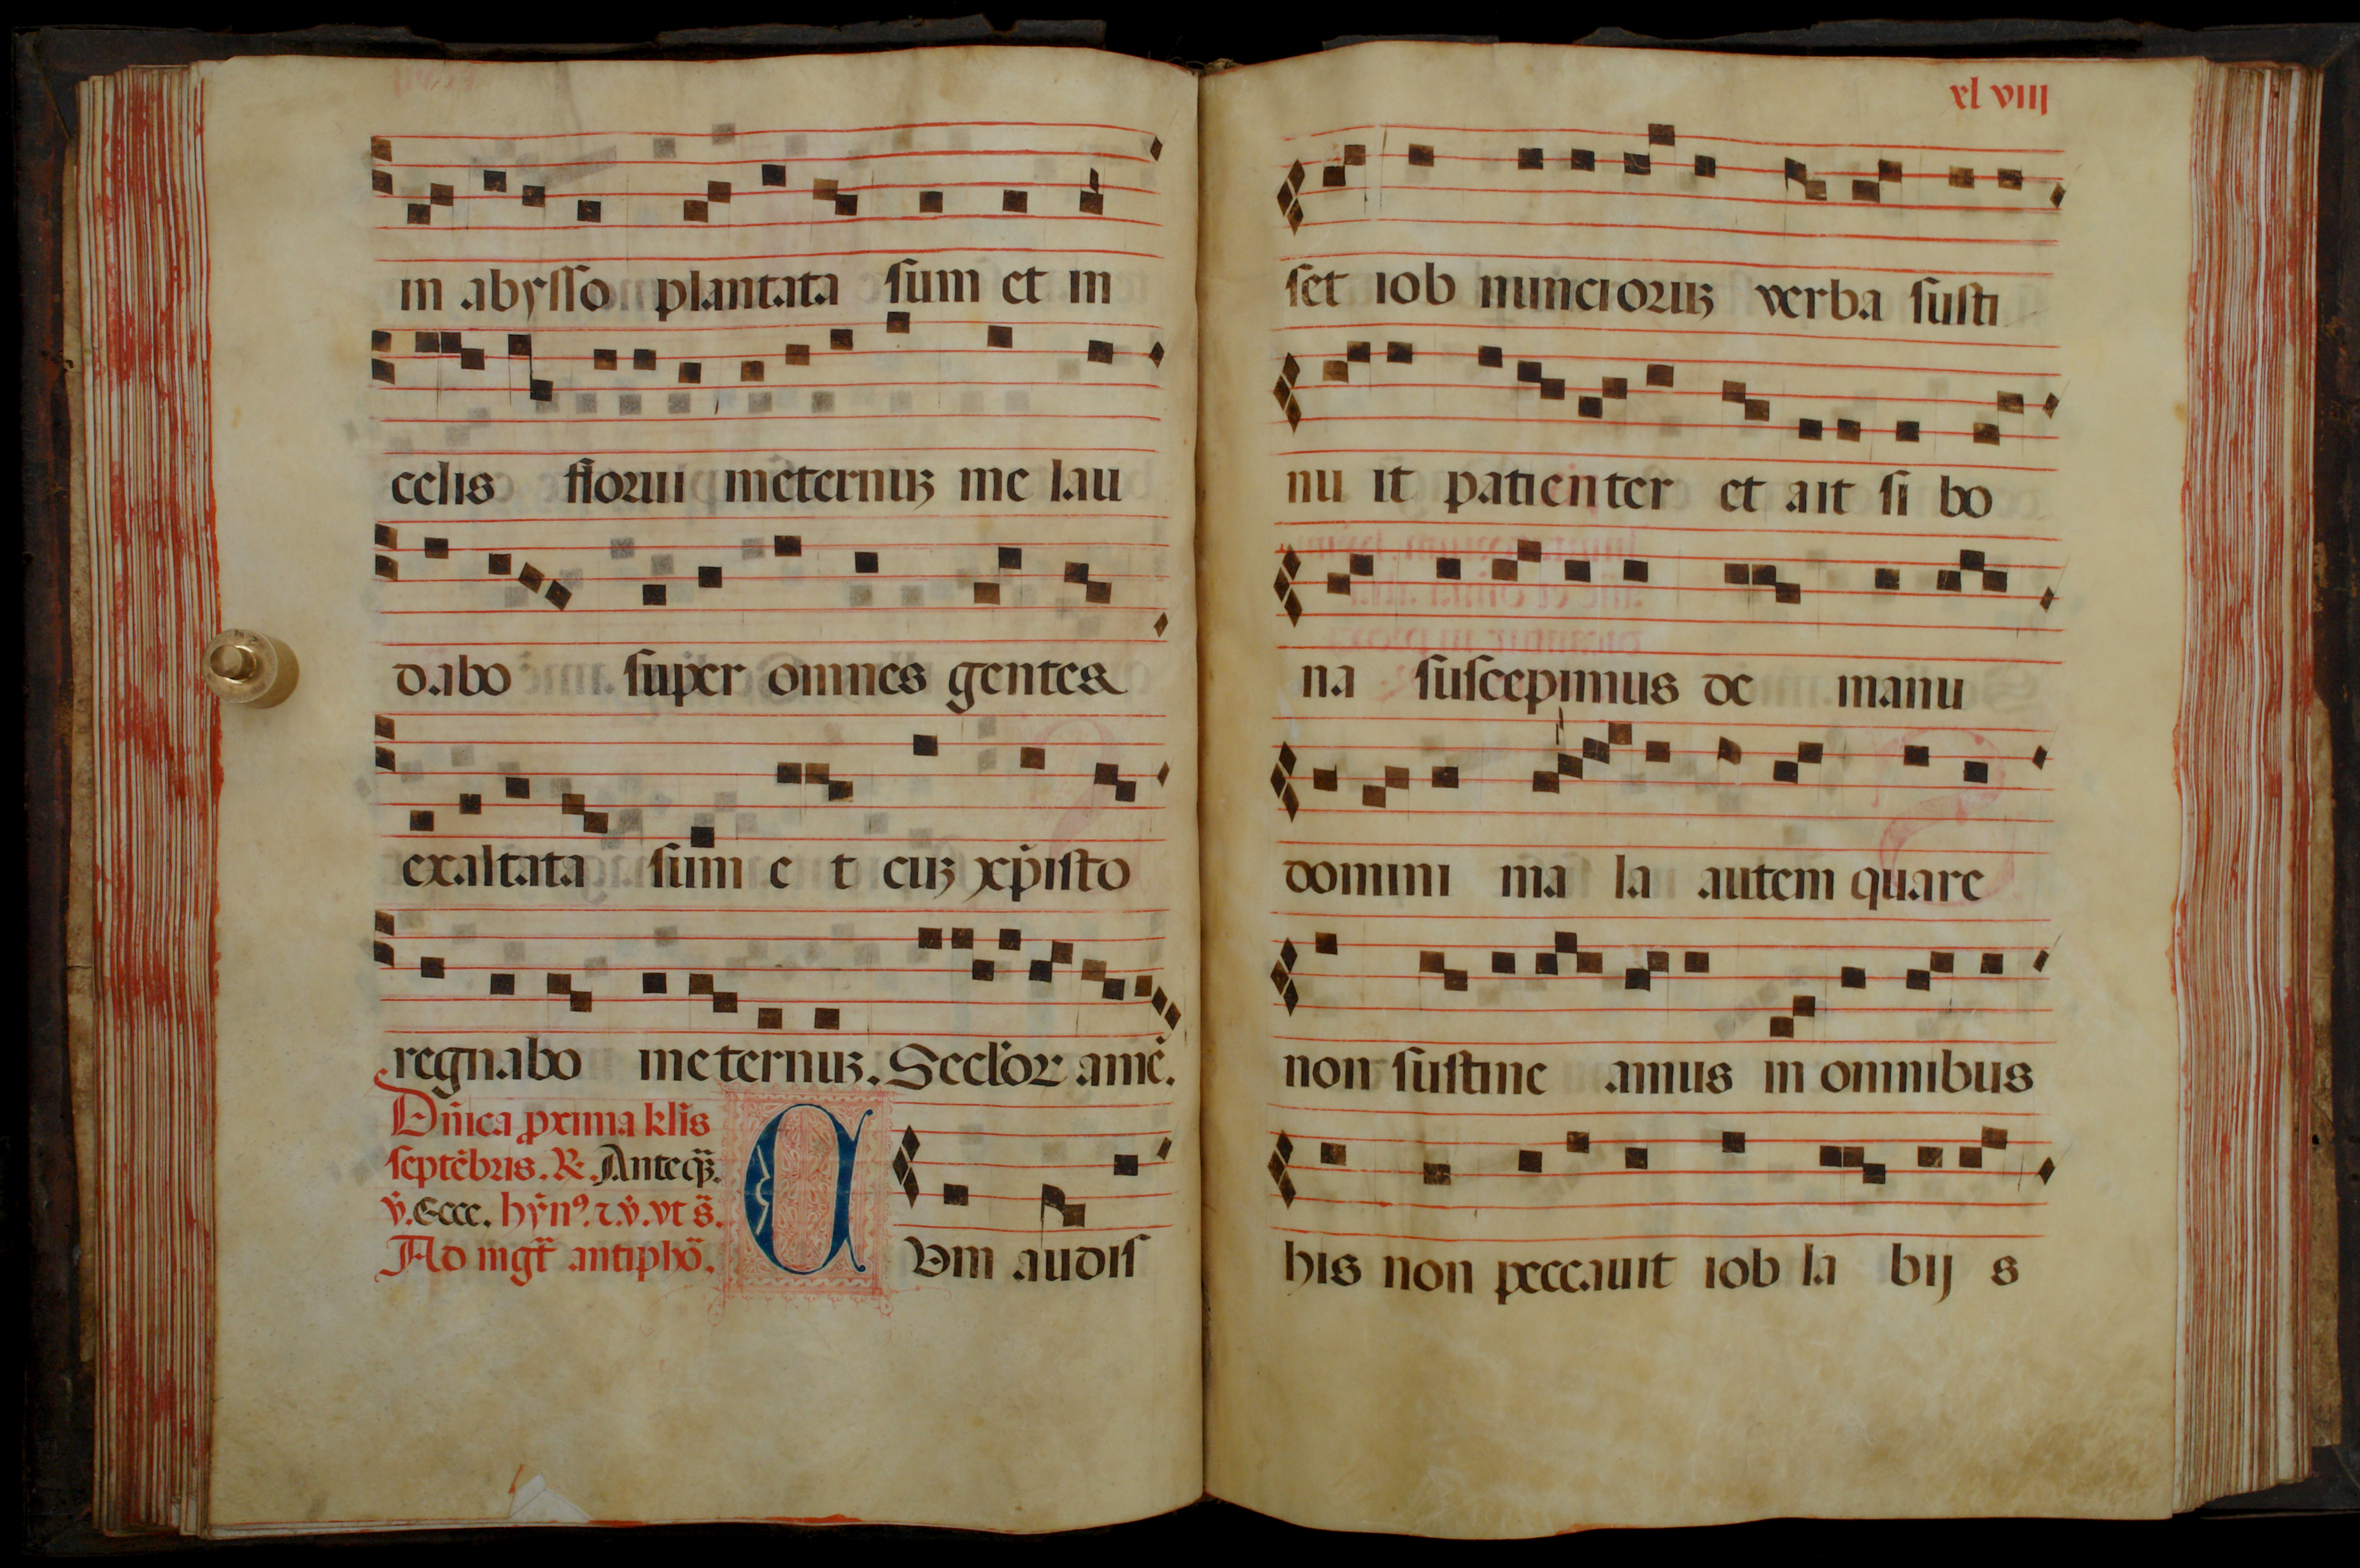 in abysso plantata sum et in
celis florui in eternuȝ me lau
dabo super omnes gentes &
exaltata sum e t cuȝ xp̄isto
regnabo in eternuȝ. Secl'oꝛ amē.
Dn̄ica pxima kl̄is
septēbris. ℟. Anteq̄ȝ.
v̄. Ecce. hȳnꝰ. ⁊. v̄. vt s̄.
Ad mgt̄ antiphō.
CVm audis
xl viiij
set iob nuncioꝛuȝ verba susti
nu it patienter et ait si bo
na suscepimus de manu
domini ma la autem quare
non sustine amus in omnibus
his non peccauit iob la bij s